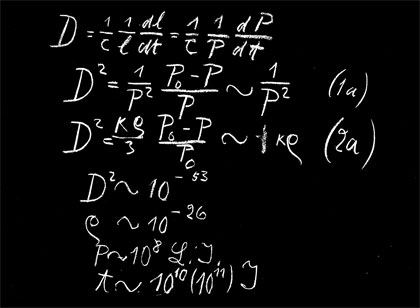 D = 1/c 1/l dl/dt = 1/c 1/P dP/dt
D² = 1/P² (P₀-P)/P ~ 1/P² (1a)
D² = κρ/3 (P₀-P)/P₀ ~ κρ (2a)
D² ~ 10⁻⁵³
ρ ~ 10⁻²⁶
P ~ 10⁸ L.J.
t ~ 10¹⁰(10¹¹) J